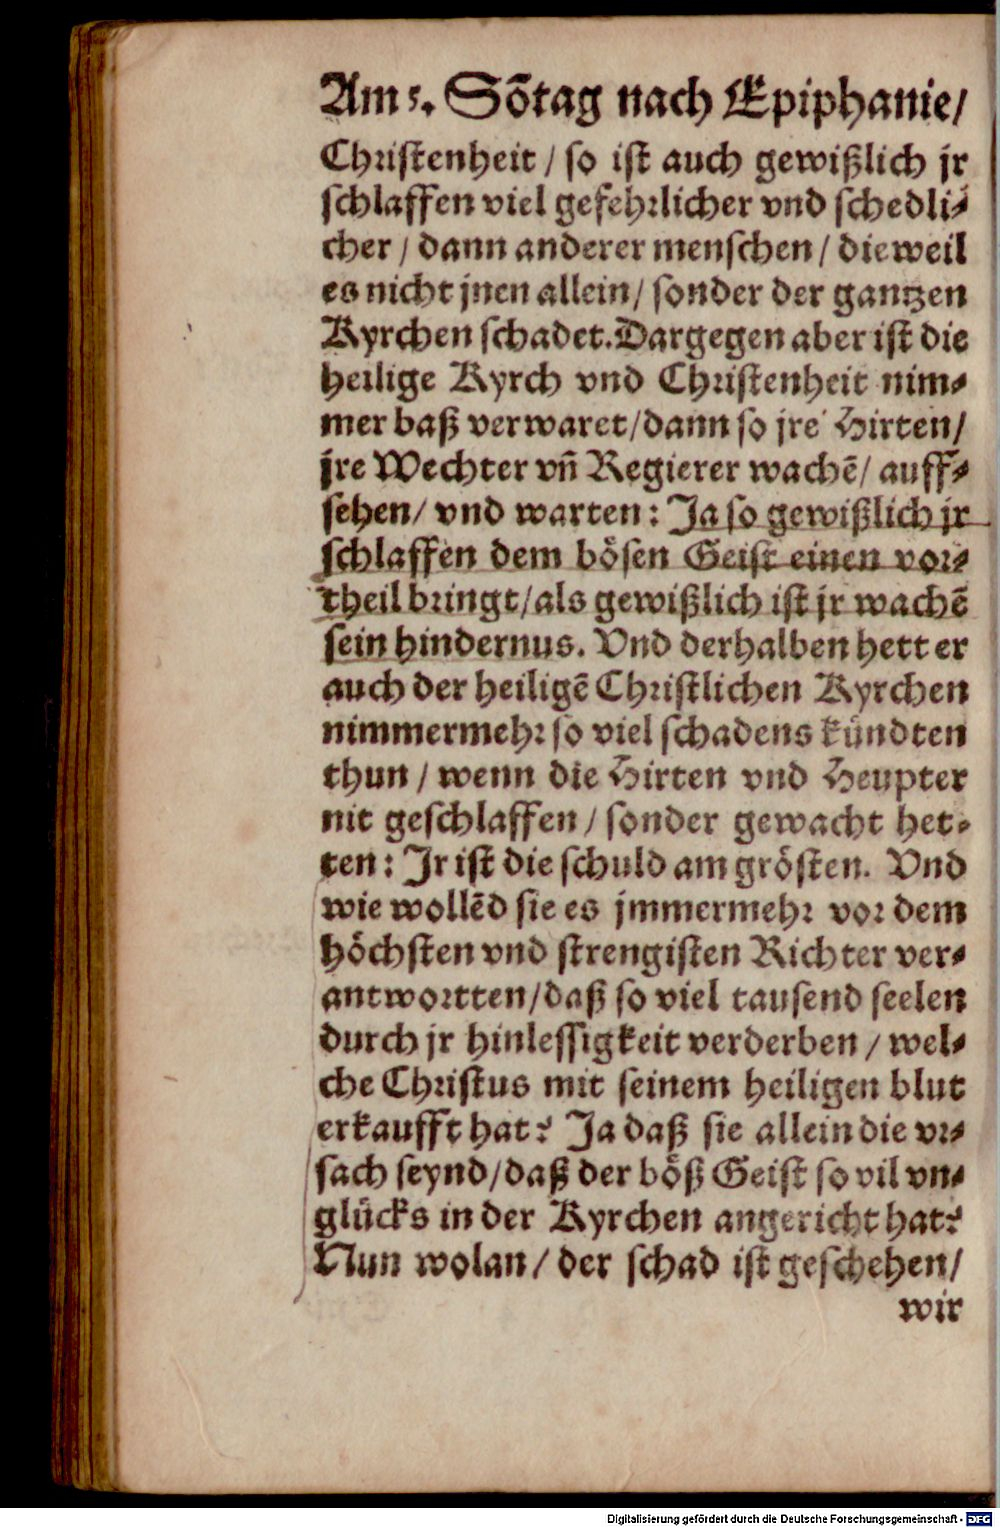 Am 5. Sõtag nach Epiphanie/
Christenheit / so ist auch gewißlich jr
schlaffen viel gefehrlicher vnd schedli⸗
cher / dann anderer menschen / dieweil
es nicht jnen allein / sonder der gantzen
Kyrchen schadet. Dargegen aber ist die
heilige Kyrch vnd Christenheit nim⸗
mer baß verwaret/dann so jre Hirten/
jre Wechter vñ Regierer wachẽ/ auff⸗
sehen/ vnd warten: Ja so gewißlich jr
schlaffen dem bösen Geist einen vor⸗
theil bringt/als gewißlich ist jr wachẽ
sein hindernus. Vnd derhalben hett er
auch der heiligẽ Christlichen Kyrchen
nimmermehr so viel schadens kündten
thun / wenn die Hirten vnd Heupter
nit geschlaffen / sonder gewacht het⸗
ten: Jr ist die schuld am grösten. Vnd
wie wollẽd sie es jmmermehr vor dem
höchsten vnd strengisten Richter ver⸗
antwortten/daß so viel tausend seelen
durch jr hinlessigkeit verderben / wel⸗
che Christus mit seinem heiligen blut
erkaufft hat? Ja daß sie allein die vr⸗
sach seynd/daß der böß Geist so vil vn⸗
glücks in der Kyrchen angericht hat?
Nun wolan / der schad ist geschehen/
wir
Digitalisierung gefördert durch die Deutsche Forschungsgemeinschaft - DFG